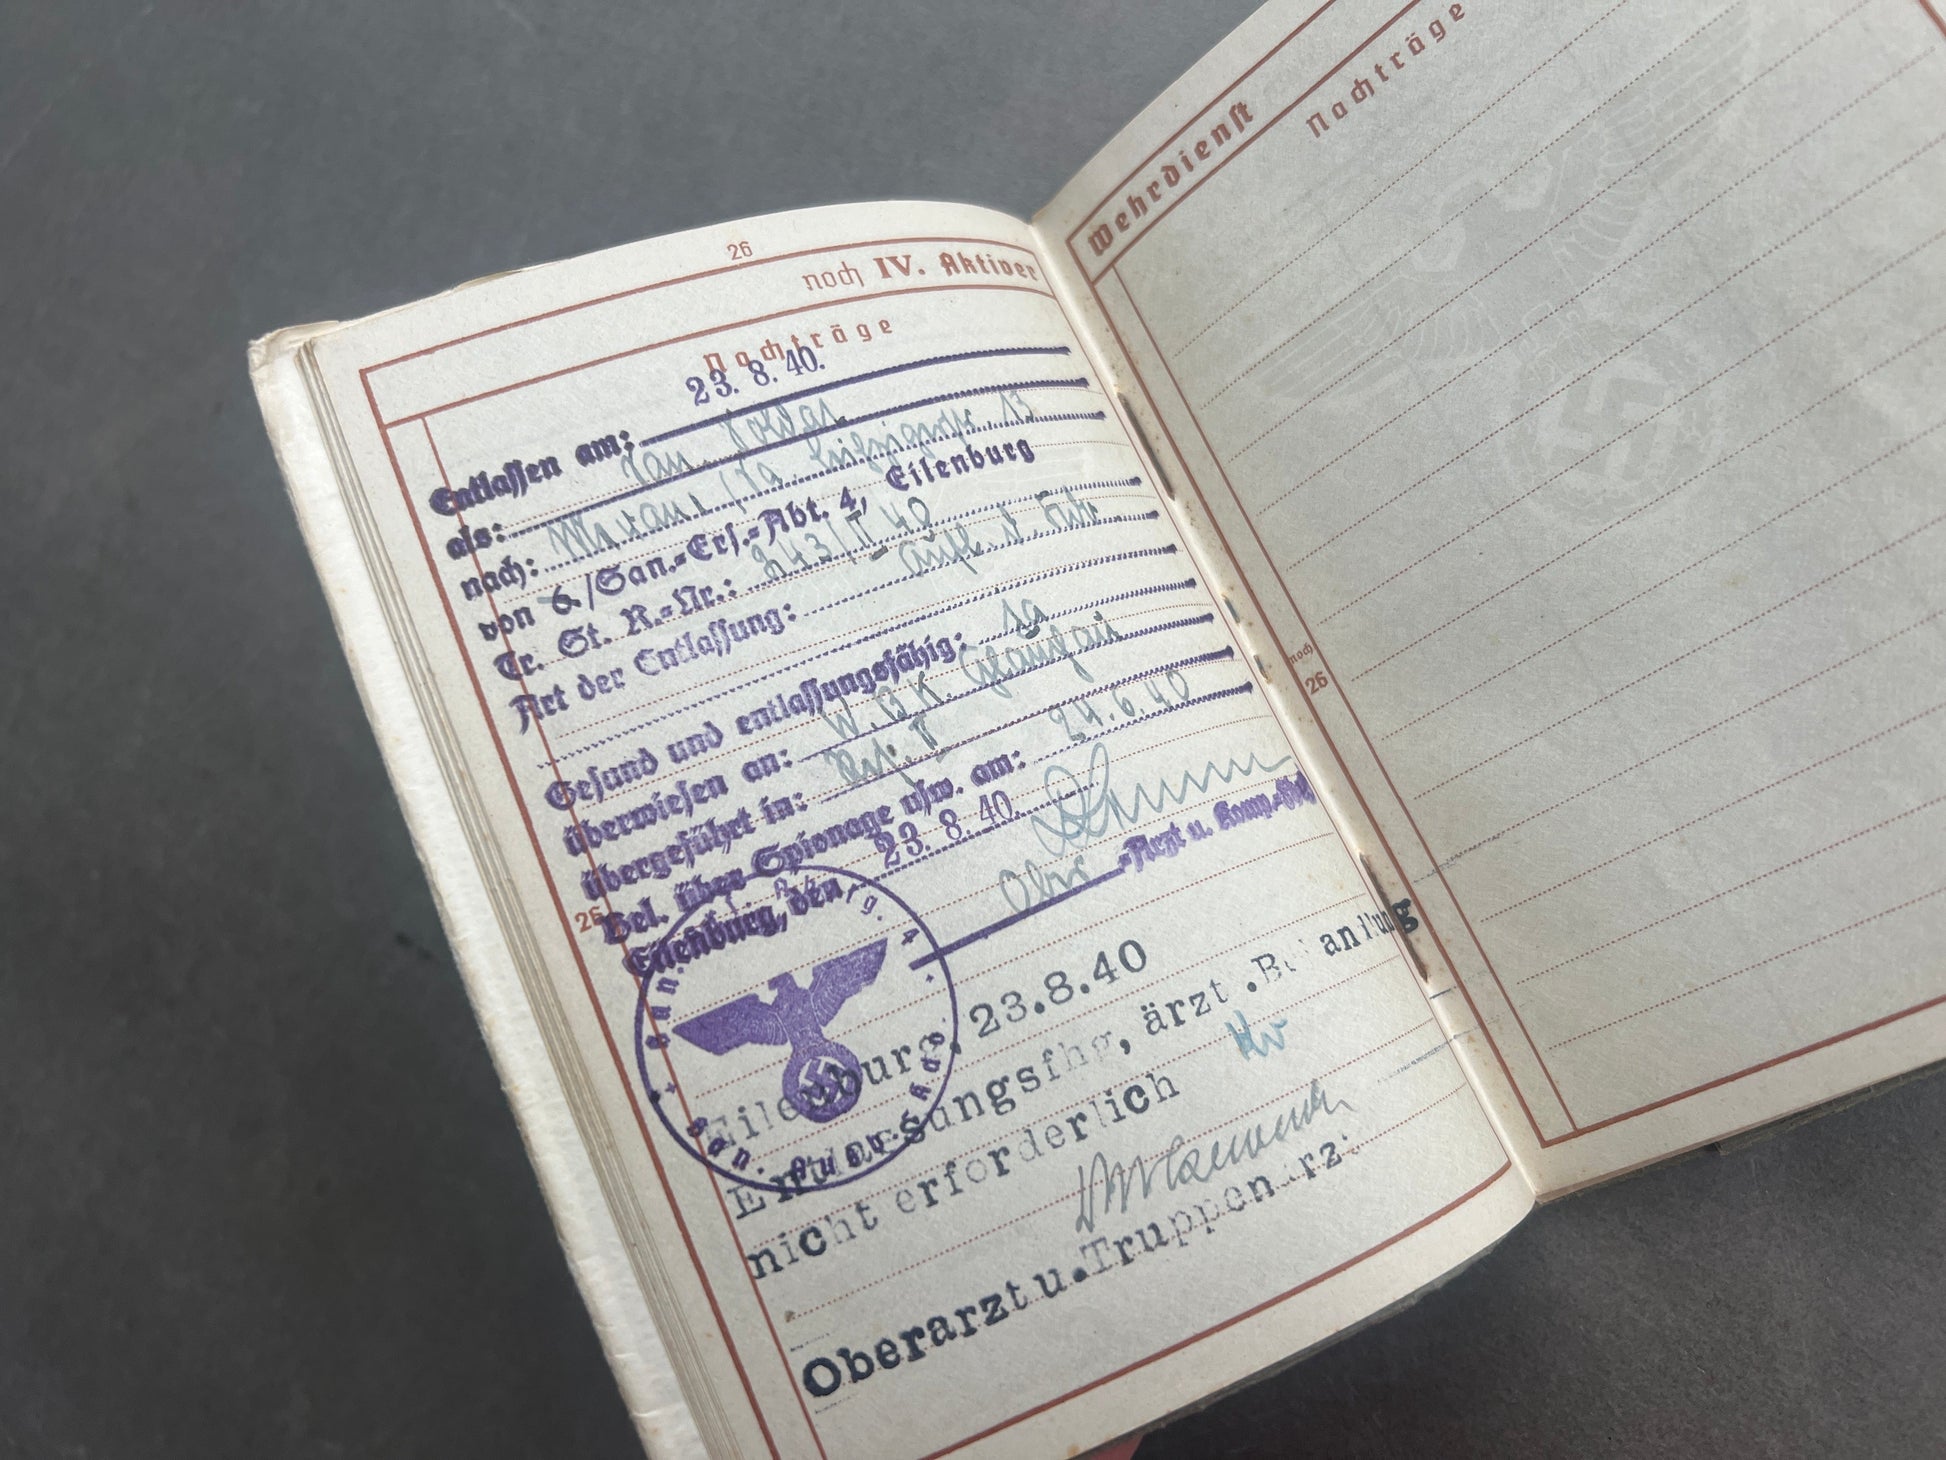 26
noch IV. Aktiver
Nachträge
23. 8. 40.
Entlassen am:
als: San. Soldat
nach: Meerane /Sa.
13
von 6/San.=Ers.=Abt. 4, Eilenburg
Tr. St. R.=Nr.: 243/II 40
Art der Entlassung:
Gesund und entlassungsfähig: Ja
überwiesen an: W.B.K. Glauchau
übergeführt in: Res. II
Bel. über Spionage usw. am: 24.6.40
Eilenburg, den 23. 8. 40.
-Arzt u. Komp.-
26
Eilenburg, 23.8.40
Entlassungsfhg, ärzt.Behandlung
nicht erforderlich
kv
Oberarzt u.Truppenarzt
Wehrdienst
Nachträge
noch
26